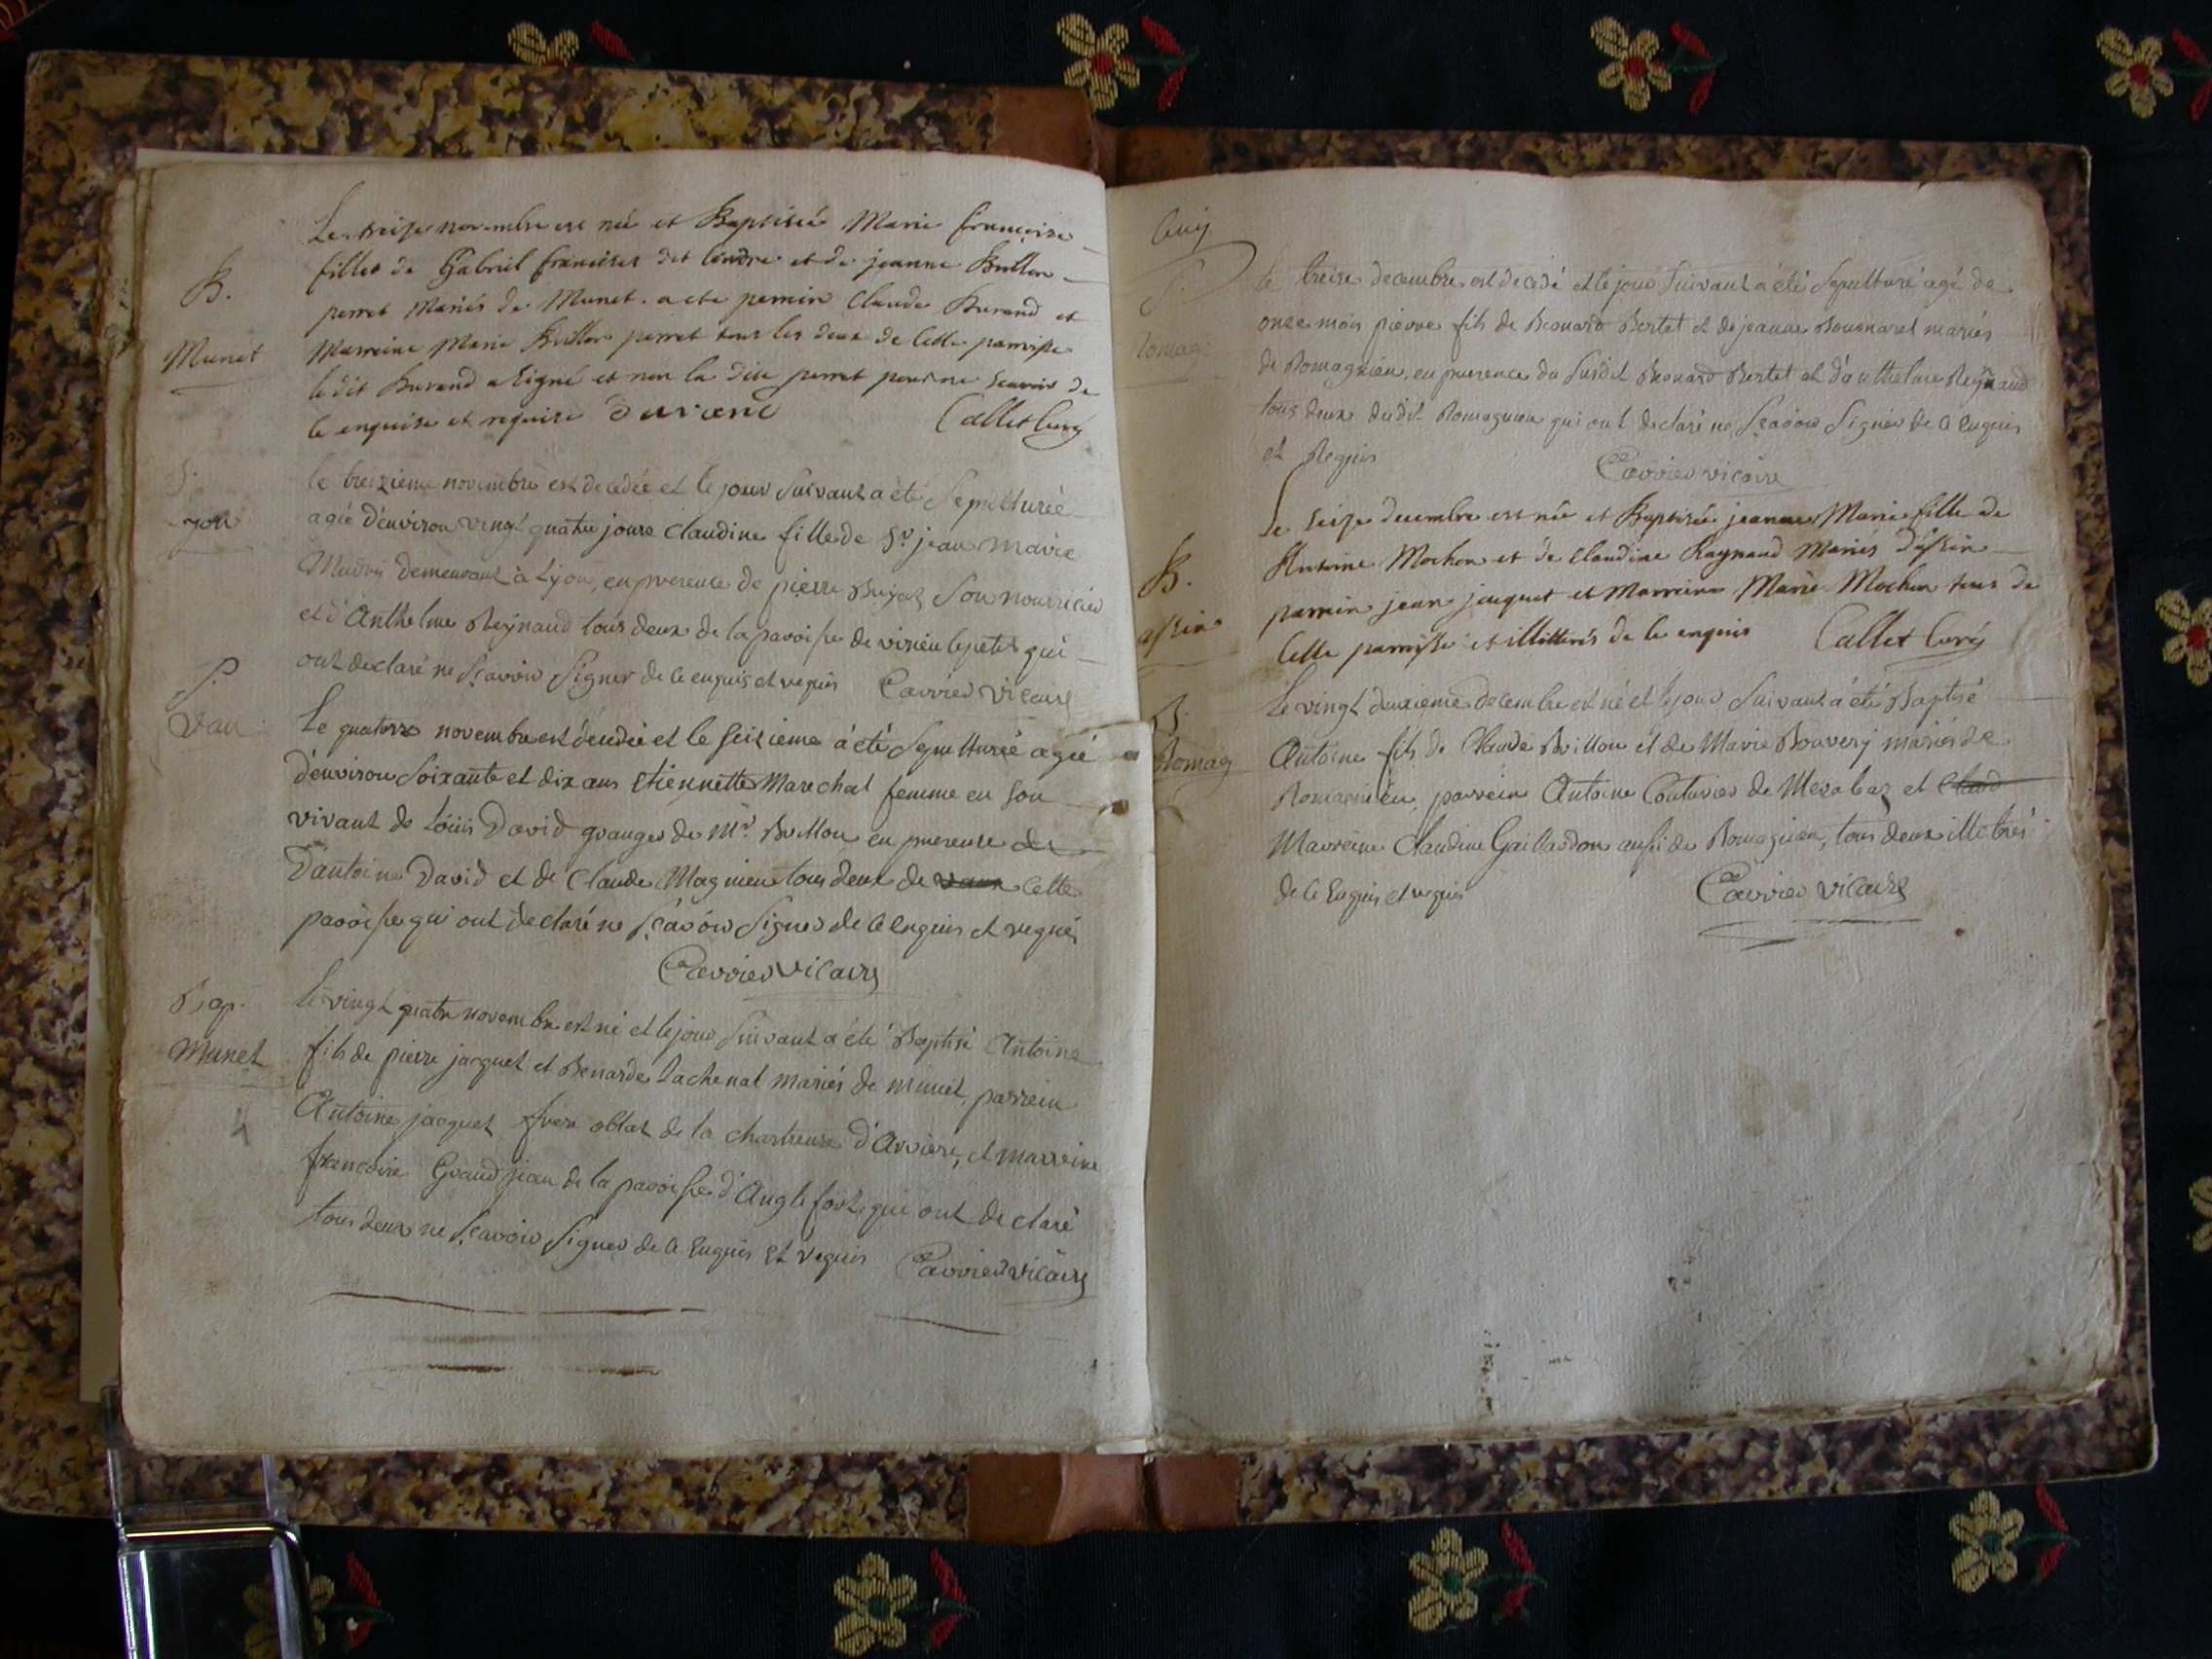 B.
Munet
Le treize novembre est née et Baptisée Marie françoise
fille de Gabriel francises dit lendre et de jeanne Brillon
perret mariés de Munet. a été parrein Claude Durand et
Marreine Marie Brillon perret tous les deux de cette parroisse
le dit Durand a signé et non la dite perret pour ne scavoir de
ce enquise et requise durand Callet Curé
S.
Lyon
le treizieme novembre est decedée et le jour suivant a été sepulturée
agée d'environ vingt quatre jours claudine fille de Sr. jean marie
demeurant à Lyon, en presence de pierre Bujat son nourricier
et d'Anthelme Reynaud tous deux de la paroisse de virieu le petit qui
ont declaré ne sçavoir signer de ce enquis et requis Carrier vicaire
S.
Vau
Le quatorze novembre est decedée et le seizieme a été sepulturée agée
d'environ soixante et dix ans etiennette Marechal femme en son
vivant de Loüis David granger de Mr. Brillon en presence de
D'antoine David et de Claude Magnieu tous deux de vaux cette
paroisse qui ont declaré ne sçavoir signer de ce enquis et requis
Carrier vicaire
Bap.
Munet
le vingt quatre novembre est né et le jour suivant a été Baptisé Antoine
fils de pierre jacquet et Benarde Lachenal mariés de munet, parrein
Antoine jacquet frere oblat de la chartreuse d'Arviere, et marreine
francoise Grandjean de la paroisse d'Anglefort qui ont declaré
tous deux ne sçavoir signer de ce enquis et requis Carrier vicaire
S.
Romag.
le treize decembre est decedé et le jour suivant a été sepulturé agé de
onze mois pierre fils de Benard Bertet et de jeanne mariés
de Romagnieu, en presence du susdit Benard Bertet et d'anthelme Reynaud
tous deux dudit Romagnieu qui ont declaré ne sçavoir signer de ce enquis
et Requis Carrier vicaire
B.
assin
Le seize decembre est née et Baptisée jeanne Marie fille de
Antoine Mochon et de claudine Raynaud Mariés d'assin
parrein jean jacquet et Marreine Marie Mochon tous de
cette parroisse et illitterés de ce enquis Callet Curé
B.
Romag
Le vingt deuxieme decembre est né et le jour suivant a été Baptisé
Antoine fils de Claude Brillon et de Marie Bouvery mariés de
Romagnieu, parrein Antoine Couturier de et Claud
Marreine Claudine Gaillardon aussi de Romagnieu, tous deux illetrés
de ce Enquis et requis Carrier vicaire